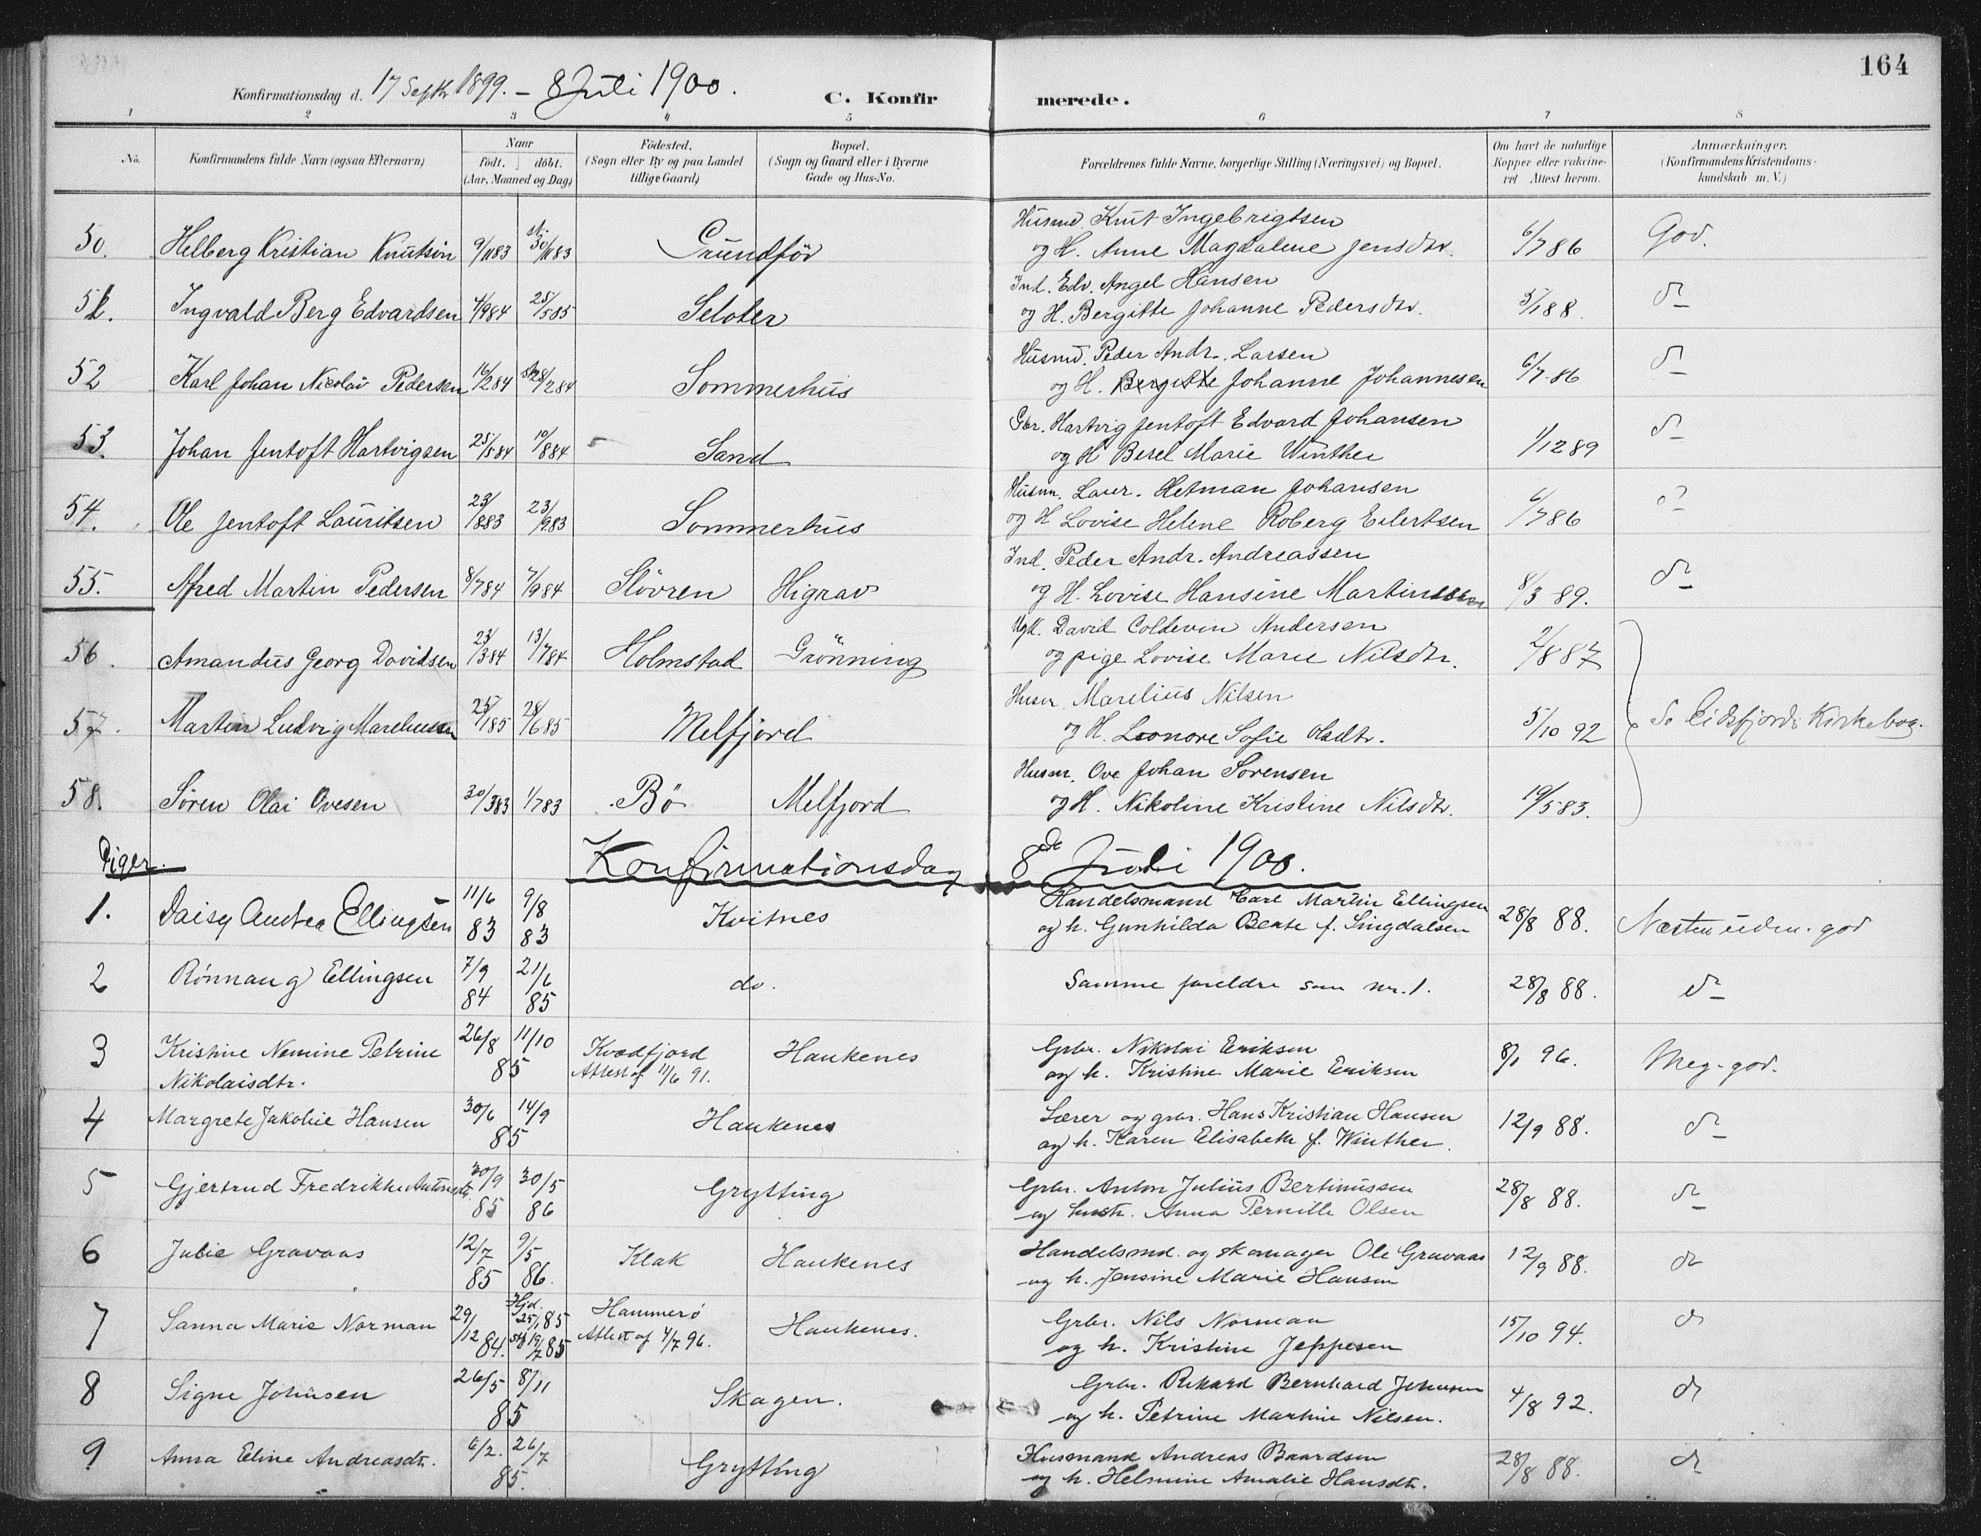 164
Konfirmationsdag d. 17 Septbr 1899. – 8 Juli 1900. C. Konfirmerede.
1 2 3 4 5 6 7 8
No. Konfirmandens fulde Navn (ogsaa Efternavn) Naar født. døbt. (Aar, Maaned og Dag) Födested. (Sogn eller By og paa Landet tillige Gaard) Bopæl. (Sogn og Gaard eller i Byerne Gade og Hus-No. Forældrenes fulde Navne, borgerlige Stilling (Næringsvei) og Bopæl. Om havt de naturlige Kopper eller vakcineret Attest herom. Anmerkninger. (Konfirmandens Kristendomskundskab m. V.)
50. Helberg Kristian Knutsøn 9/11 83 st. 30/11 83 Grundför Husmd. Knut Ingebrigtsen 6/7 86 God.
og H. Anne Magdalene Jensdtr.
51. Ingvald Berg Edvardsen 4/9 84 25/5 85 Selater Ind. Edv. Angel Hansen 5/1 88. do
og H. Bergitte Johanne Pedersdtr.
52 Karl Johan Nicolai Pedersen 16/2 84 28/2 84 Sommerhus Husmd. Peder Andr. Larsen 6/7 86 do
og H. Johanne Johannesen
53. Johan Jentoft Hartvigsen 25/5 84 10/8 84 Sand Gbr. Hartvig Jentoft Edvard Johansen 1/12 89 do
og H Besel Marie Winther
54. Ole Jentoft Lauritsen 23/8 83 23/9 83 Sommerhus Husm. Laur. Hetman Johansen 6/7 86 do
og H Lovise Helene Roberg Eilertsen
55. Alfred Martin Pedersen 8/7 84 7/9 84 Slövren Higrav Ind. Peder Andr. Andreassen 8/3 89. do
og H. Lovise Hansine
56. Amandus Georg Davidsen 23/3 84 13/7 84 Holmstad Grönning Ugk. David Coldevin Andersen 2/8 87
og pige Lovise Marie Nilsdtr.
57. Martin Ludvig Mareliussen 25/1 85 28/6 85 Melfjord Husm. Marelius Nilsen 5/10 92 Se Eidsfjords Kirkebog.
og H. Leonore Sofie Olsdtr.
58. Søren Olai Ovesen 30/3 83 1/7 83 Bø Melfjord Husm. Ove Johan Sørensen 19/5 83.
og H. Nikoline Kristine Nilsdtr.
Piger. Konfirmationsdag 8de Juli 1900.
1. Daisy Andrea Ellingsen 11/6 83 9/8 83 Kvitnes Handelsmand Carl Martin Ellingsen 28/8 88. Næsten uden. god
og h. Gunhilda Beate f. Singdalsen
2 Rønnaug Ellingsen 7/9 84 21/6 85 do. Samme foreldre som nr. 1. 28/8 88. do
3 Kristine Nemine Petrine 26/8 11/10 85 Kvedfjord Haukenes Grbr. Nikolai Eriksen 8/1 96. Meg. god.
Nikolaisdtr. Attest af 11/6 91. og h. Kristine Marie Eriksen
4 Margrete Jakobie Hansen 30/6 14/9 85 Haukenes Lærer og grbr. Hans Kristian Hansen 12/9 88. do
og h. Karen Elisabeth f. Winther.
5 Gjertrud Fredrikke Antonsdtr. 30/9 85 30/5 86 Grytting Grbr. Anton Julius Bertinussen 28/8 88. do
og hustr. Anna Pernille Olsen
6 Julie Gravaas 12/7 85 9/5 86. Klak Haukenes Handelsmd. og skomager Ole Gravaas 12/9 88. do
og h. Jensine Marie Hansen
7 Sanna Marie Norman 29/12 84. Hjd. 25/1 85 19/7 85 Hammerø Haukenes. Grbr. Nils Norman 15/10 94. do
Attest af 4/7 96. og h. Kristine Jeppesen
8 Signe Johnsen 26/5 8/11 85 Skagen. Grbr. Rikard Bernhard Johnsen 4/8 92. do
og h. Petrine Martine Nilsen.
9 Anna Eline Andreasdtr. 6/2. 26/7 85. Grytting Husmand Andreas Baardsen 28/8 88. do
og h. Helmine Amalie Hansdtr.